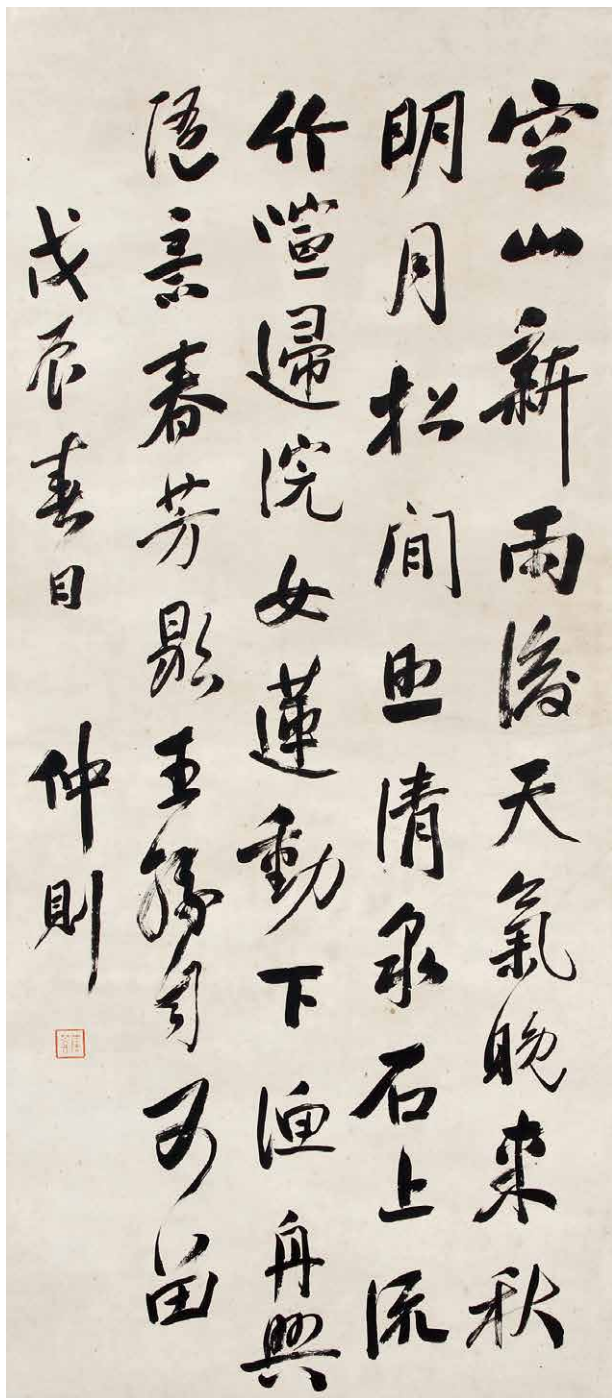 空山新雨後天氣晚來秋
明月松間照清泉石上流
竹喧歸浣女蓮動下漁舟興
隨意春芳歇王孫自可留
戊辰春日 仲則